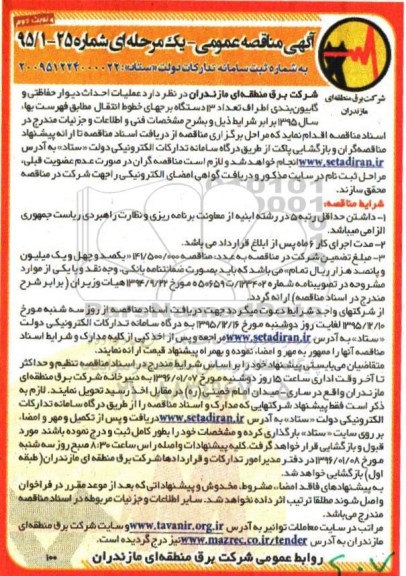 نوبت دوم
آگهی مناقصه عمومی - یک مرحله‌ای شماره ۲۵-۹۵/۱
به شماره ثبت سامانه تدارکات دولت «ستاد»: ۲۰۰۹۵۱۲۲۴۰۰۰۰۲۲
شرکت برق منطقه‌ای
مازندران
شرکت برق منطقه‌ای مازندران در نظر دارد عملیات احداث دیوار حفاظتی و
گابیون‌بندی اطراف تعداد ۳ دستگاه برجهای خطوط انتقال مطابق فهرست بها،
سال ۱۳۹۵ برابر شرایط ذیل و بشرح مشخصات فنی و اطلاعات و جزئیات مندرج در
اسناد مناقصه اقدام نماید که مراحل برگزاری مناقصه از دریافت اسناد مناقصه تا ارائه پیشنهاد
مناقصه‌گران و بازگشایی پاکت از طریق درگاه سامانه تدارکات الکترونیکی دولت «ستاد» به آدرس
www.setadiran.ir انجام خواهد شد و لازم است مناقصه گران در صورت عدم عضویت قبلی،
مراحل ثبت نام در سایت مذکور و دریافت گواهی امضای الکترونیکی را جهت شرکت در مناقصه
محقق سازند.
شرایط مناقصه:
۱- داشتن حداقل رتبه ۵ در رشته ابنیه از معاونت برنامه ریزی و نظارت راهبردی ریاست جمهوری
الزامی میباشد.
۲- مدت اجرای کار ۶ ماه پس از ابلاغ قرارداد می باشد.
۳- مبلغ تضمین شرکت در مناقصه به عدد: مناقصه ۱۴۱/۵۰۰/۰۰۰ «یکصد و چهل و یک میلیون
و پانصد هزار ریال تمام» می باشد که باید بصورت ضمانتنامه بانکی، وجه نقد و یا یکی از موارد
مشروحه در تصویبنامه شماره ۱۲۳۴۰۲/ت۵۰۶۵۹ه مورخ ۱۳۹۴/۹/۲۲ هیات وزیران ( برابر شرح
مندرج در اسناد مناقصه) ارائه گردد.
از شرکتهای واجد شرایط دعوت میگردد جهت دریافت اسناد مناقصه از روز سه شنبه مورخ
۱۳۹۵/۱۲/۱۰ لغایت روز دوشنبه مورخ ۱۳۹۵/۱۲/۱۶ به درگاه سامانه تدارکات الکترونیکی دولت
«ستاد» به آدرس www.setadiran.ir مراجعه و پس از اخذ کپی از کلیه مدارک و شرایط اسناد
مناقصه آنها را ممهور به مهر و امضاء نموده و بهمراه پیشنهاد قیمت ارائه نمایند.
متقاضیان می‌بایستی پیشنهاد خود را بر اساس شرایط مندرج در اسناد مناقصه تنظیم و حداکثر
تا آخر وقت اداری ساعت ۱۵ روز دوشنبه مورخ ۱۳۹۶/۰۱/۰۷ به دبیرخانه شرکت برق منطقه‌ای
مازندران واقع در ساری - میدان امام خمینی (ره) در مقابل اخذ رسید تحویل نمایند. لازم به
ذکر است فقط پیشنهاد شرکتهایی که مدارک و اسناد مناقصه را از طریق درگاه سامانه تدارکات
الکترونیکی دولت «ستاد» به آدرس www.setadiran.ir دریافت و پس از تکمیل و مهر و امضاء،
بر روی سایت «ستاد» بارگذاری کرده و مشخصات خود را بطور کامل ثبت و درج نموده باشند مورد
قبول و بازگشایی قرار خواهد گرفت. کلیه پیشنهادات واصله راس ساعت ۸:۳۰ صبح روز سه شنبه
مورخ ۱۳۹۶/۰۱/۰۸ در دفتر مدیر امور تدارکات و قراردادها شرکت برق منطقه ای مازندران( طبقه
اول) بازگشایی خواهد شد.
به پیشنهادهای فاقد امضاء، مشروط، مخدوش و پیشنهاداتی که بعد از موعد مقرر در فراخوان
واصل شوند مطلقا ترتیب اثر داده نخواهد شد. سایر اطلاعات و جزئیات مربوطه در اسناد مناقصه
مندرج می‌باشد.
مراتب در سایت معاملات توانیر به آدرس www.tavanir.org.ir و سایت شرکت برق منطقه‌ای
مازندران به آدرس www.mazrec.co.ir/tender نیز درج گردیده است.
روابط عمومی شرکت برق منطقه‌ای مازندران
۱۰۰